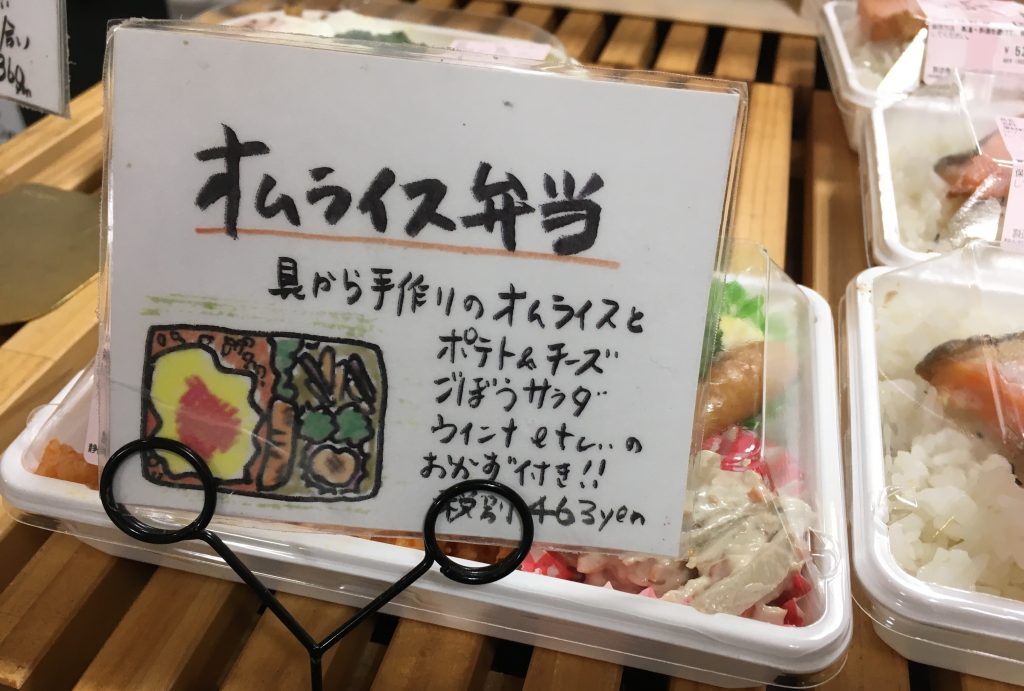 オムライス弁当
具から手作りのオムライスと
ポテト&チーズ
ごぼうサラダ
ウインナetc..の
おかず付き!!
税別 463yen